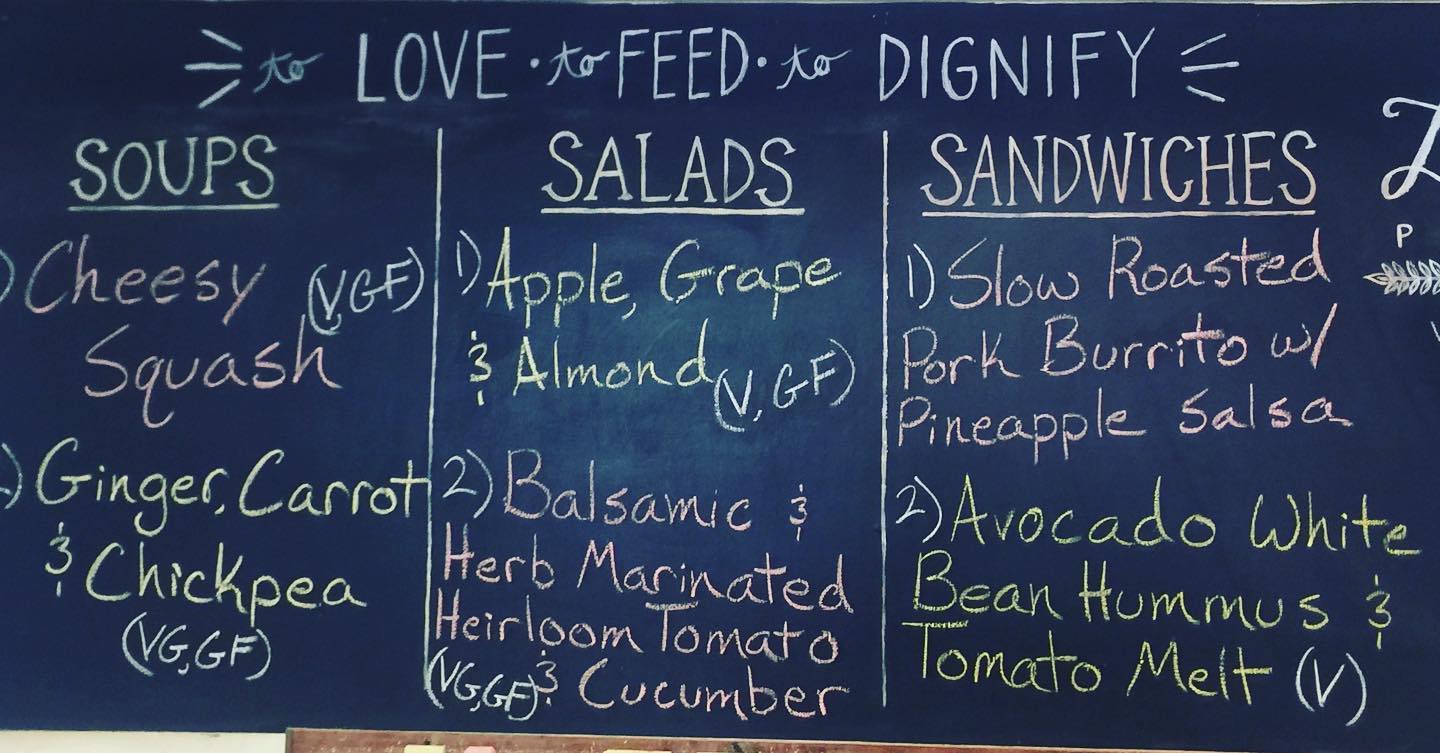 to LOVE · to FEED · to DIGNIFY
SOUPS
) Cheesy (V,GF)
Squash
) Ginger, Carrot
& Chickpea
(VG,GF)
SALADS
1) Apple, Grape
& Almond (V, GF)
2) Balsamic &
Herb Marinated
Heirloom Tomato
(VG,GF) & Cucumber
SANDWICHES
1) Slow Roasted
Pork Burrito w/
Pineapple Salsa
2) Avocado White
Bean Hummus &
Tomato Melt (V)
P